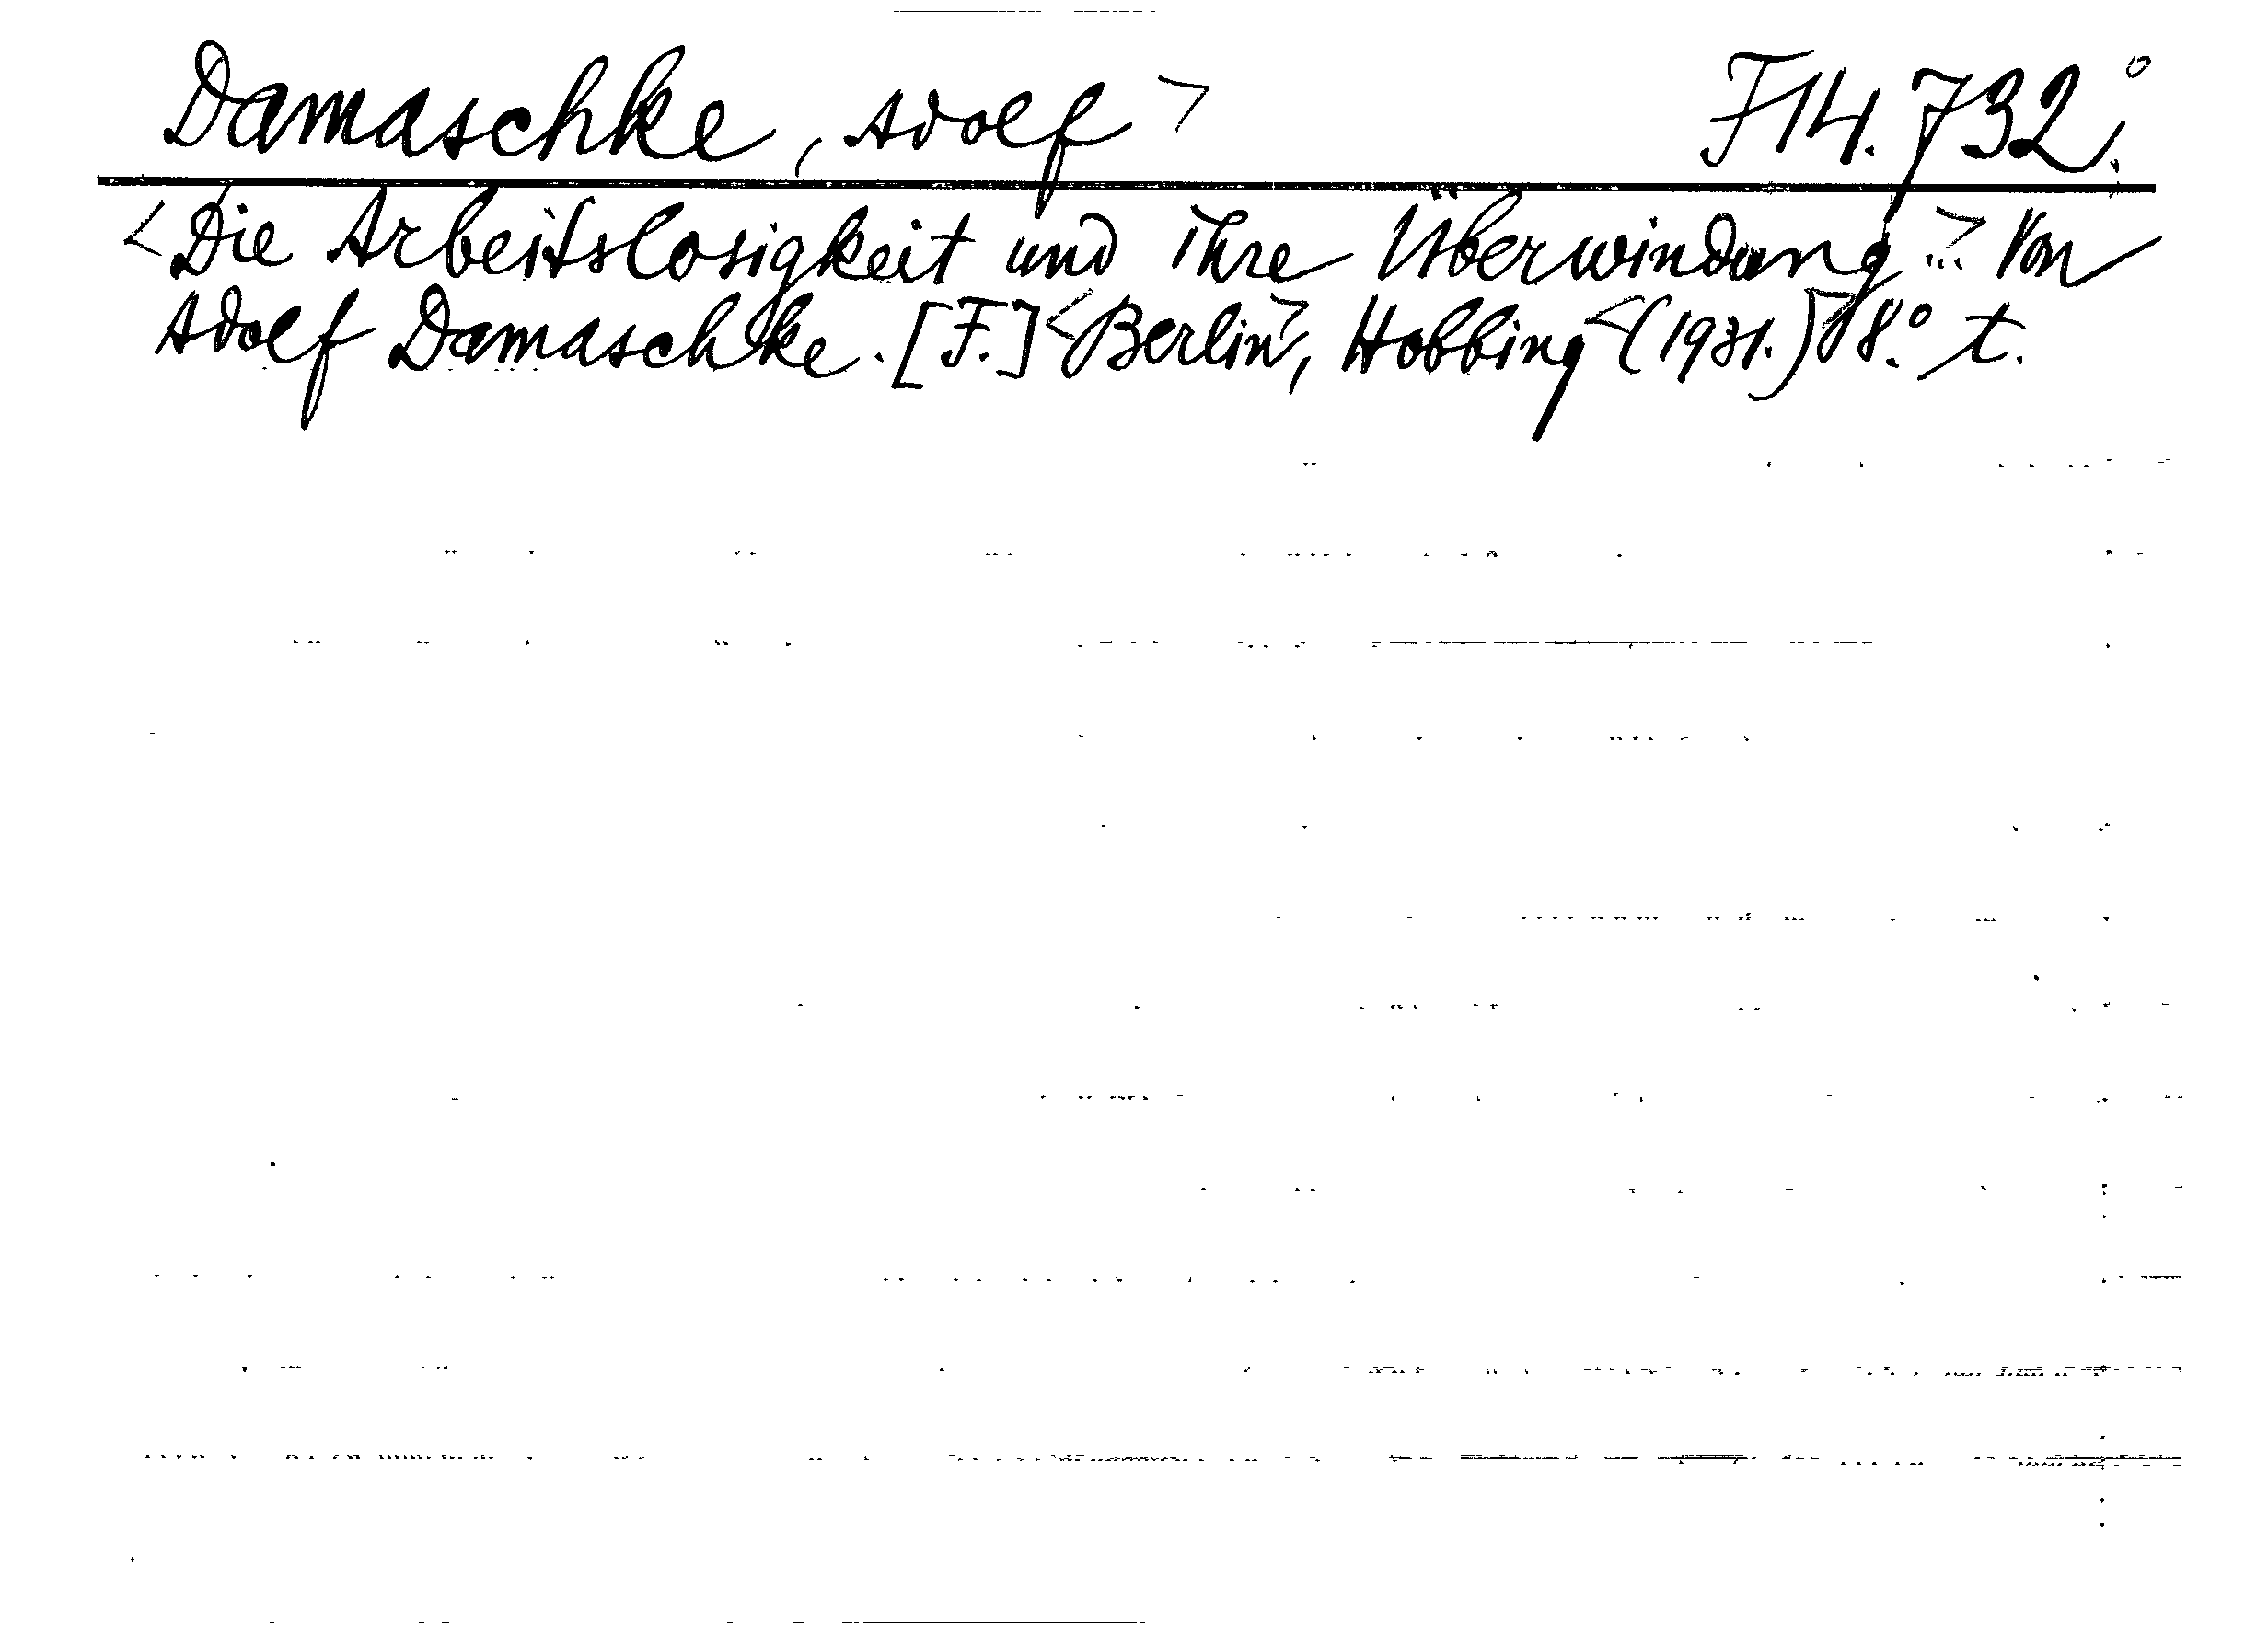 Damaschke, Adolf> F14.732.°
<Die Arbeitslosigkeit und ihre Überwindung...> Von
Adolf Damaschke. [F.] <Berlin>, Hobbing <(1931.)> 8.° t.